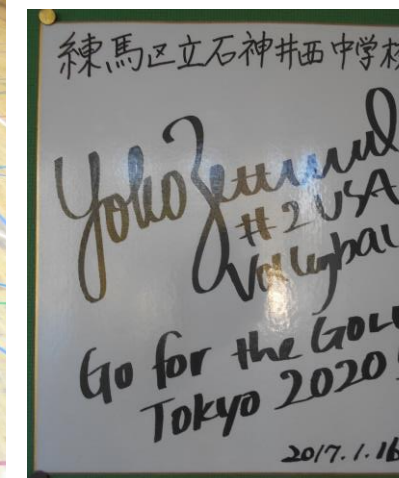 練馬区立石神井西中学校
Yoko Zetterlund
#2 USA
Volleyball
Go for the GOLD
Tokyo 2020!
2017.1.16